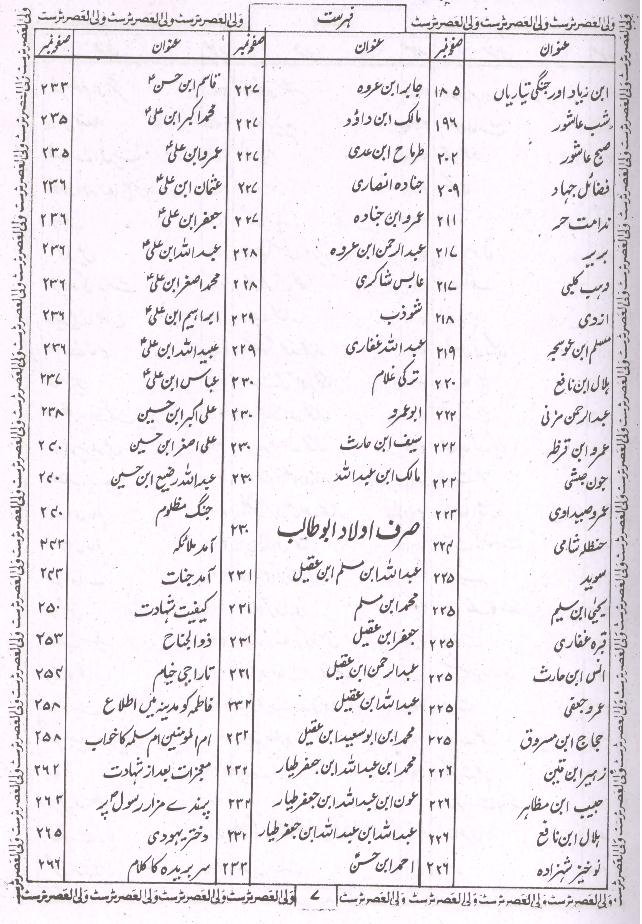 فہرست
عنوان صفحہ نمبر
ابن زیاد اور جنگی تیاریاں ۱۸۵
شب عاشور ۱۹۶
صبح عاشور ۲۰۲
فضائل جہاد ۲۰۹
ندامت حر ۲۱۱
بریر ۲۱۷
وہب کلبی ۲۱۷
ازدی ۲۱۸
مسلم ابن عوسجہ ۲۱۹
ہلال ابن نافع ۲۲۰
عبدالرحمن مزنی ۲۲۲
عمرو ابن قرظہ ۲۲۲
جون حبشی ۲۲۲
عمرو صیداوی ۲۲۳
حنظلہ شامی ۲۲۴
سوید ۲۲۵
یحییٰ ابن سلیم ۲۲۵
قرہ غفاری ۲۲۵
انس ابن حارث ۲۲۵
عمرو جعفی ۲۲۵
حجاج ابن مسروق ۲۲۵
زہیر ابن قین ۲۲۶
حبیب ابن مظاہر ۲۲۶
ہلال ابن نافع ۲۲۶
نوخیز شہزادہ ۲۲۶
عنوان صفحہ نمبر
جابر ابن عروہ ۲۲۷
مالک ابن داؤد ۲۲۷
طرماح ابن عدی ۲۲۷
جنادہ انصاری ۲۲۷
عمرو ابن جنادہ ۲۲۷
عبدالرحمن ابن عروہ ۲۲۸
عابس شاکری ۲۲۸
شوذب ۲۲۹
عبداللہ غفاری ۲۲۹
ترکی غلام ۲۳۰
ابو عمرو ۲۳۰
سیف ابن حارث ۲۳۰
مالک ابن عبداللہ ۲۳۰
صرف اولاد ابوطالب ۲۳۰
عبداللہ ابن مسلم ابن عقیل ۲۳۱
محمد ابن مسلم ۲۳۱
جعفر ابن عقیل ۲۳۱
عبدالرحمن ابن عقیل ۲۳۱
عبداللہ ابن عقیل ۲۳۲
محمد ابن ابو سعید ابن عقیل ۲۳۲
محمد ابن عبداللہ ابن جعفر طیار ۲۳۲
عون ابن عبداللہ ابن جعفر طیار ۲۳۲
عبداللہ ابن عبداللہ ابن جعفر طیار ۲۳۲
احمد ابن حسنؑ ۲۳۳
عنوان صفحہ نمبر
قاسم ابن حسنؑ ۲۳۳
محمد اکبر ابن علیؑ ۲۳۵
عمرو ابن علیؑ ۲۳۵
عثمان ابن علیؑ ۲۳۶
جعفر ابن علیؑ ۲۳۶
عبداللہ ابن علیؑ ۲۳۶
محمد اصغر ابن علیؑ ۲۳۶
ابراہیم ابن علیؑ ۲۳۶
عبید اللہ ابن علیؑ ۲۳۶
عباس ابن علیؑ ۲۳۷
علی اکبر ابن حسین ۲۳۸
علی اصغر ابن حسین ۲۴۰
عبداللہ رضیع ابن حسین ۲۴۰
جنگ مظلوم ۲۴۰
آمد ملائکہ ۲۴۳
آمد جنات ۲۴۳
کیفیت شہادت ۲۵۰
ذوالجناح ۲۵۳
تاراجی خیام ۲۵۴
فاطمہ کو مدینہ میں اطلاع ۲۵۸
ام المومنین ام سلمہ کا خواب ۲۵۸
معجزات بعد از شہادت ۲۶۲
پرندے مزار رسولؐ پر ۲۶۳
دختر یہودی ۲۶۵
سر بریدہ کا کلام ۲۶۶
۷